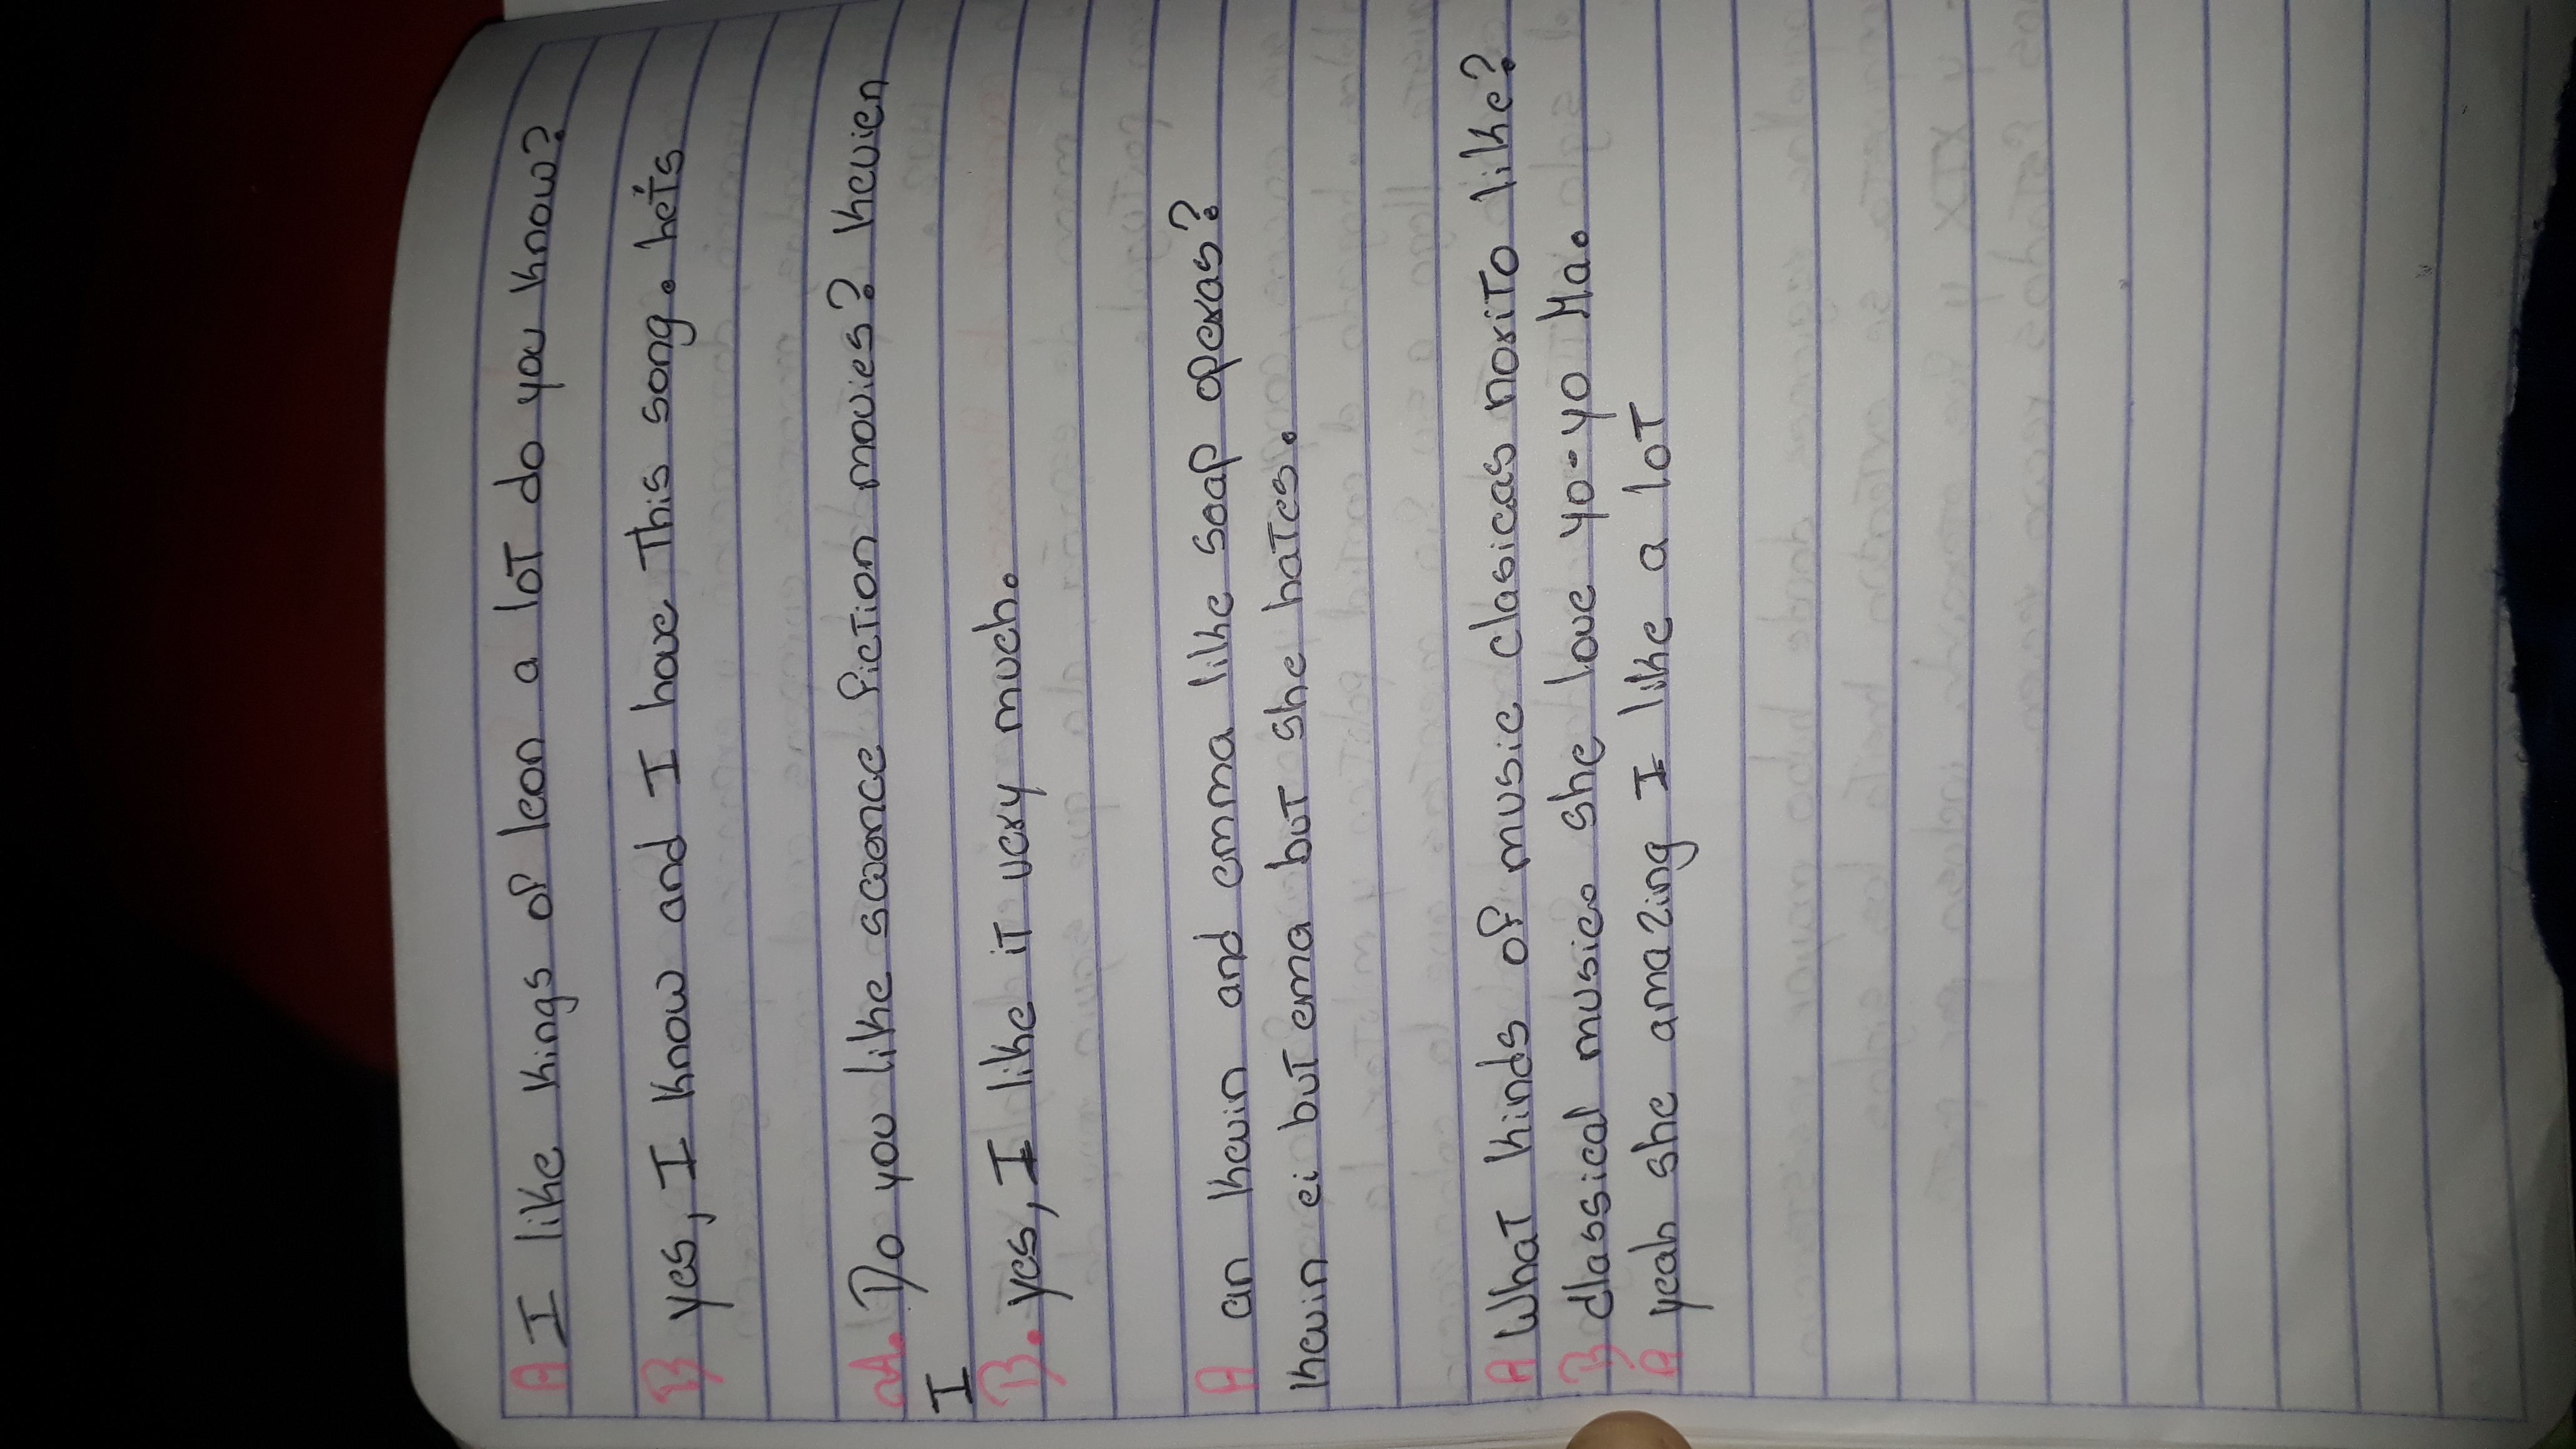 A I like kings of leon a lot do you know?
B yes, I know and I have This song. het's
A. Do you like science fiction movies? kevien
I
B. yes, I like it very much.
A an kevin and emma like soap operas?
kevin ei but ema but she hates.
A What kinds of music clasicas norito like?
B classical music. she love yo-yo Ma.
A yeah she amazing I like a lot